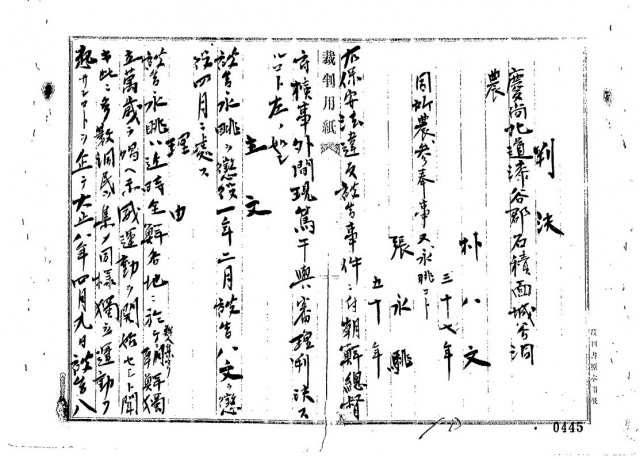 判決
慶尚北道漆谷郡石積面城谷洞
農
朴八文
三十七年
同所農参奉事又永眺コト
張永眺
五十年
右保安法違反被告事件ニ付朝鮮總督
府検事外間現篤干與審理判決スル
コト左ノ如シ
主文
被告永眺ヲ懲役一年二月被告八文ヲ懲
役四月ニ處ス
理由
被告永眺ハ近時全鮮各地ニ於ケル朝鮮獨
立萬歳ヲ唱ヘ示威運動ヲ開始セシト聞
キ此ニ多数洞民ヲ集メ同様獨立運動ヲ
起サンコトヲ企テ大正八年四月九日被告八
裁判用紙
0445